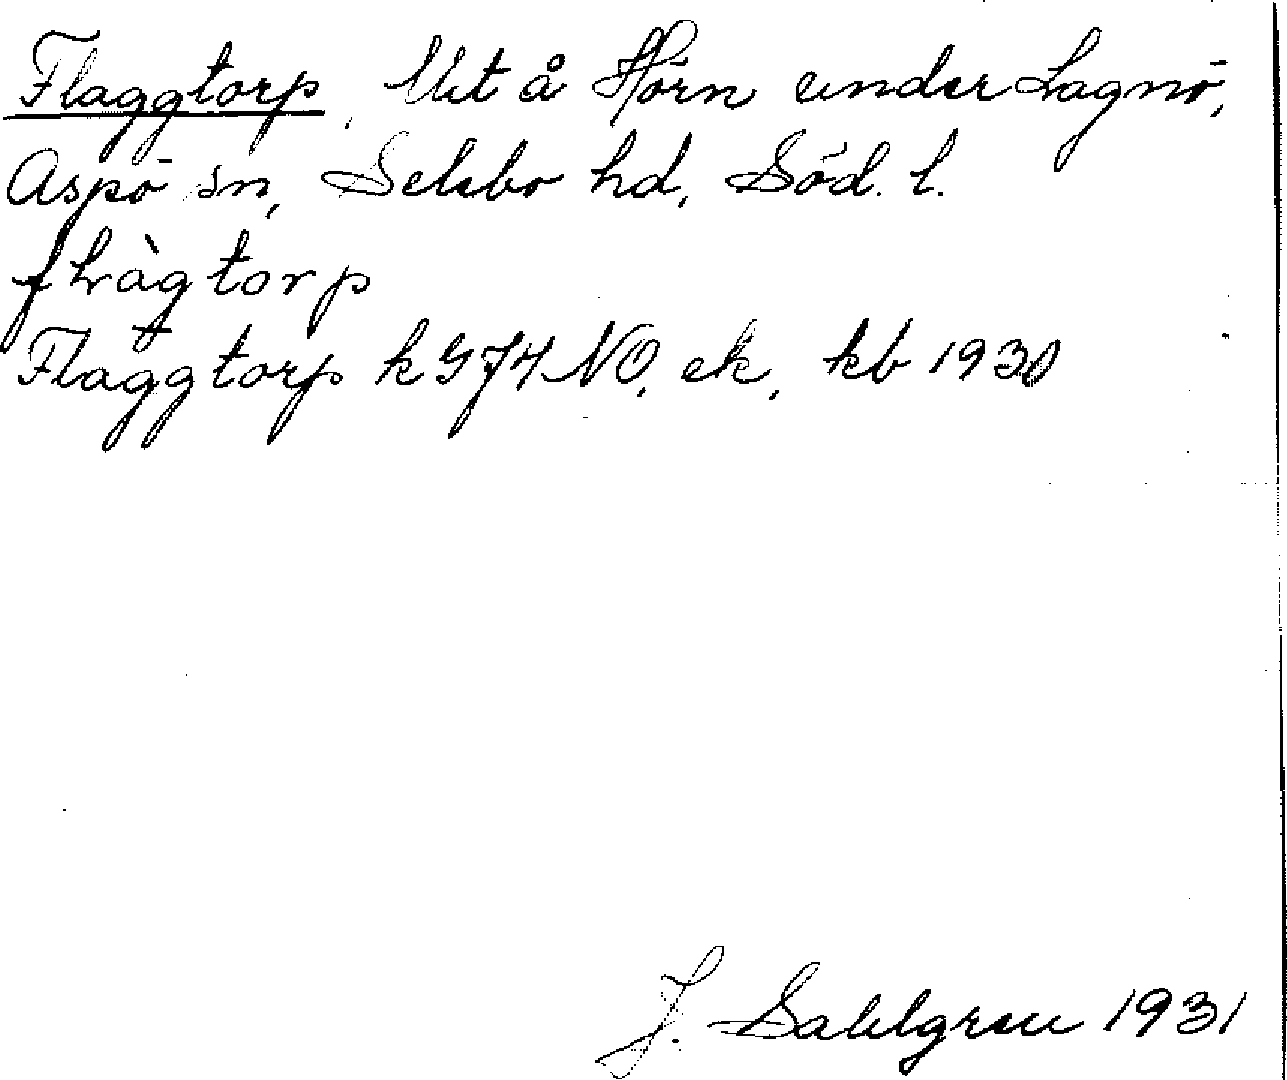 Flaggtorp, Utt å Hörn under Lagnö,
Aspö sn, Selebo hd, Söd. l.
flàgtorp
Flaggtorp k G74 NO, ek, kb 1930
J. Sahlgren 1931